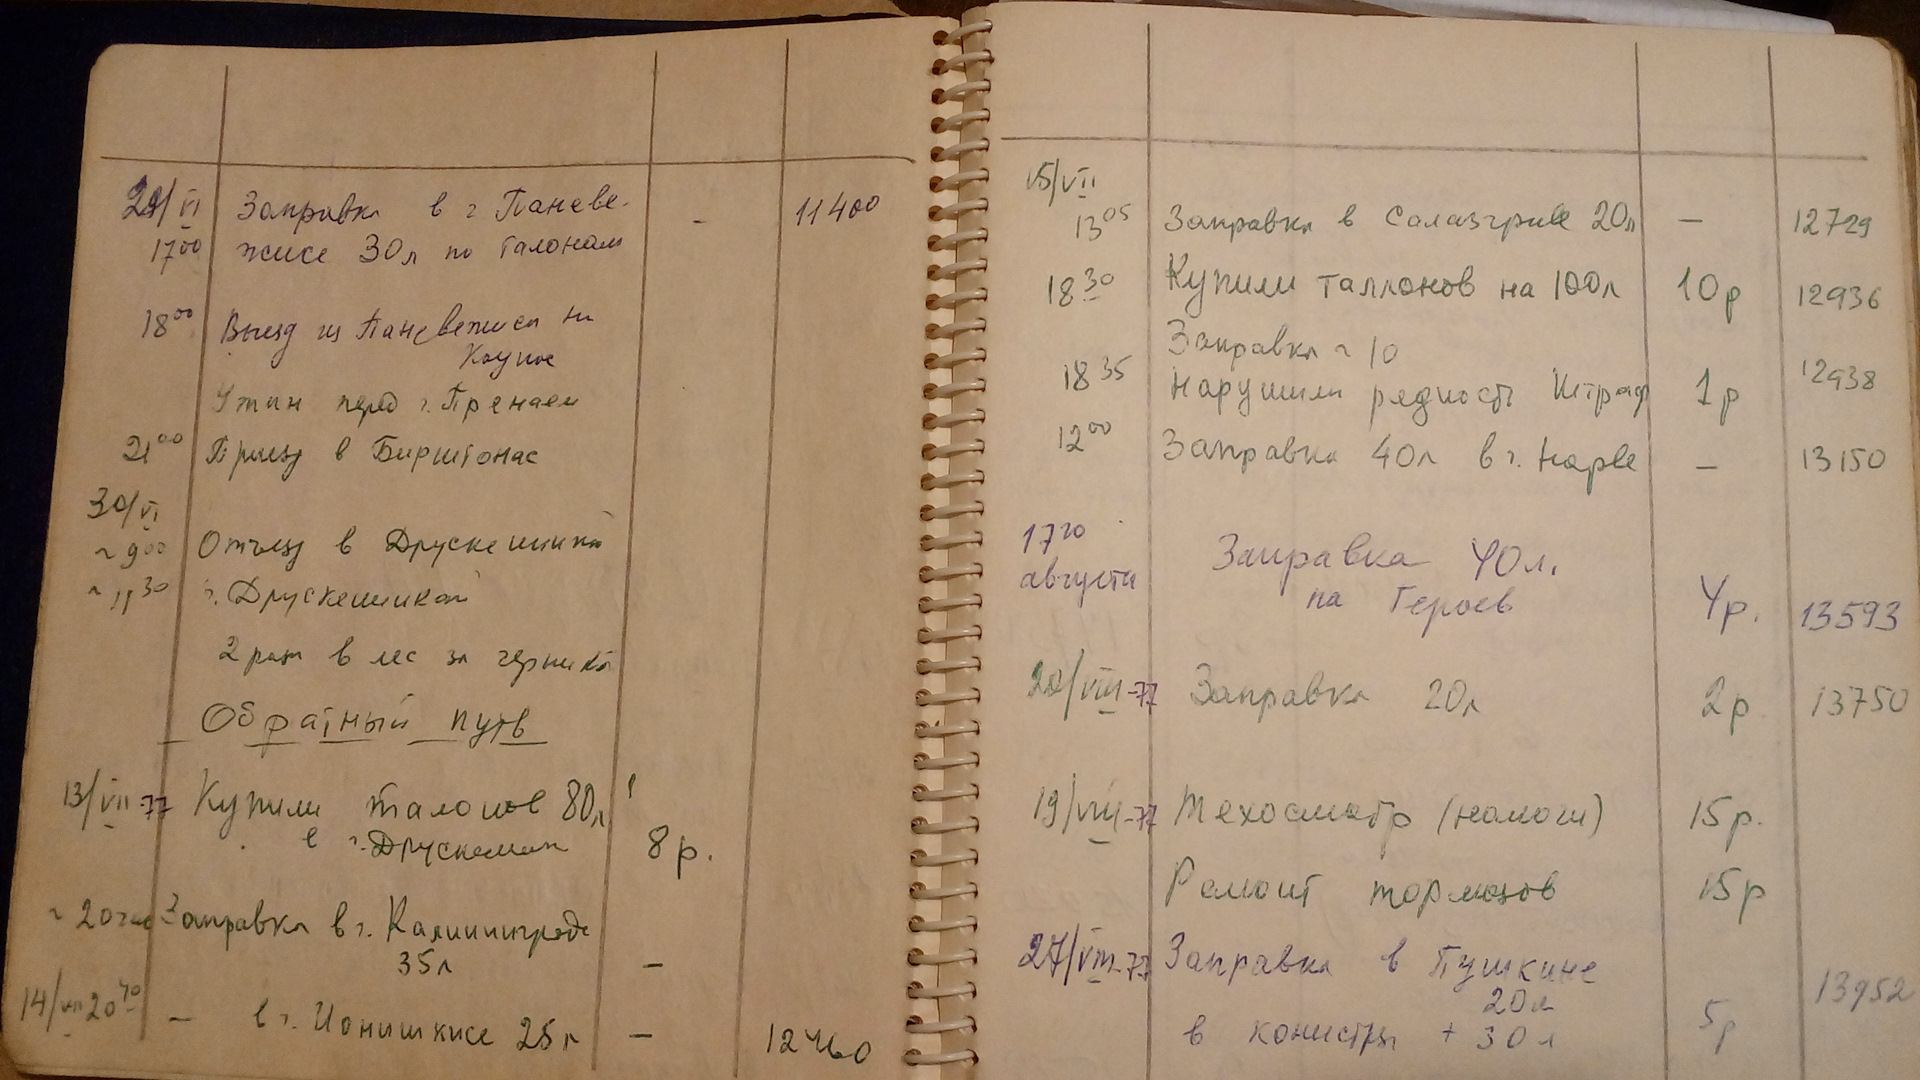 29/VI Заправка в г Паневе- - 11400
17 00 жисе 30л по талонам
18 00 Выезд из Паневежиса на
Каунас
Ужин перед г. Пренаем
21 00 Приезд в Бирштонас
30/VI
~ 9 00 Отъезд в Друскеникай
~ 11 30 г. Друскеникай
2 раза в лес за черникой
Обратный путь
13/VII-77 Купили талонов 80л
в г. Друскеники 8р.
~ 20час Заправка в г. Калининграде
35л -
14/VII 20 40 - в г. Ионишкисе 25л - 12460
15/VII
13 05 Заправка в Салазгриве 20л - 12729
18 30 Купили таллонов на 100л 10р 12936
Заправка ~ 10
18 35 Нарушили рядность Штраф 1р 12938
12 00 Заправка 40л в г. Нарве - 13150
17 20 Заправка 40л.
августа на Героев 4р. 13593
20/VIII-77 Заправка 20л 2р 13750
19/VIII-77 Техосмотр (налоги) 15р.
Ремонт тормозов 15р
27/VIII-77 Заправка в Пушкине 13952
20л
в канистры + 30л 5р